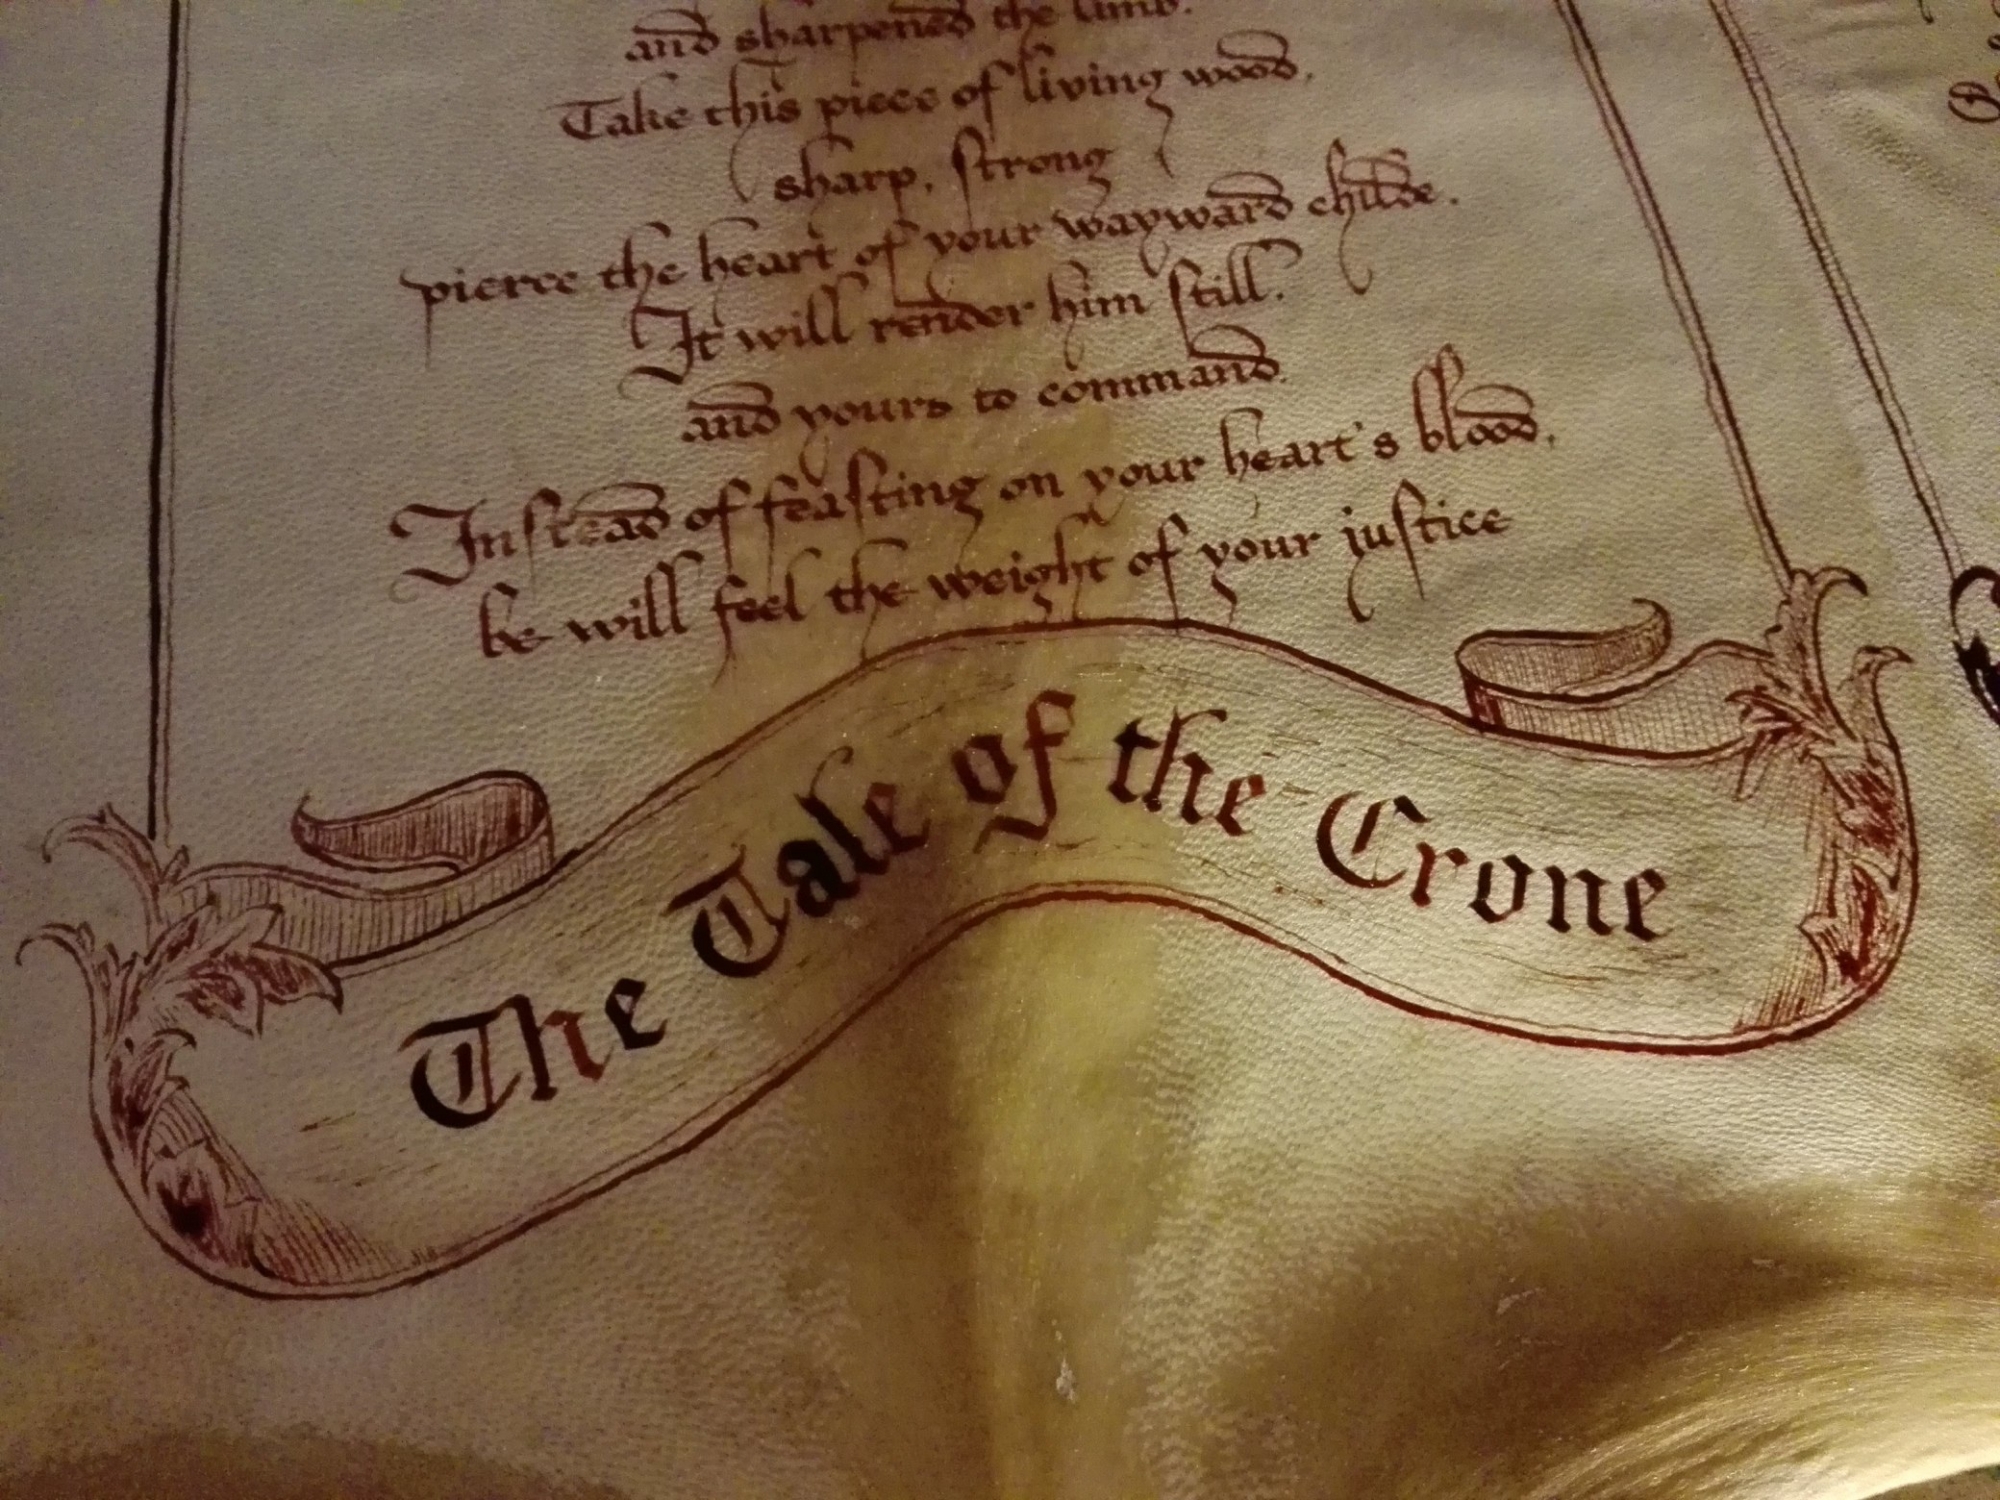 and sharpened the limb.
Take this piece of living wood,
sharp, strong
pierce the heart of your wayward childe.
It will render him still.
and yours to command.
Instead of feasting on your heart's blood,
he will feel the weight of your justice
The Tale of the Crone